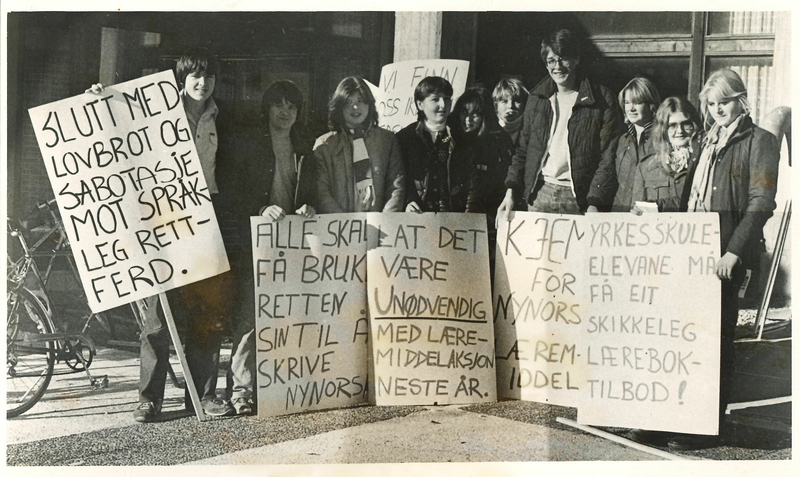 SLUTT MED
LOVBROT OG
SABOTASJE
MOT SPRÅK-
LEG RETT-
FERD.
VI FINN
OSS
ALLE SKAL
FÅ BRUK
RETTEN
SIN TIL Å
SKRIVE
NYNORS
LAT DET
VÆRE
UNØDVENDIG
MED LÆRE-
MIDDELAKSJON
NESTE ÅR.
KJEM
FOR
NYNORS
LÆREM-
IDDEL
YRKESSKULE-
ELEVANE MÅ
FÅ EIT
SKIKKELEG
LÆREBOK-
TILBOD!